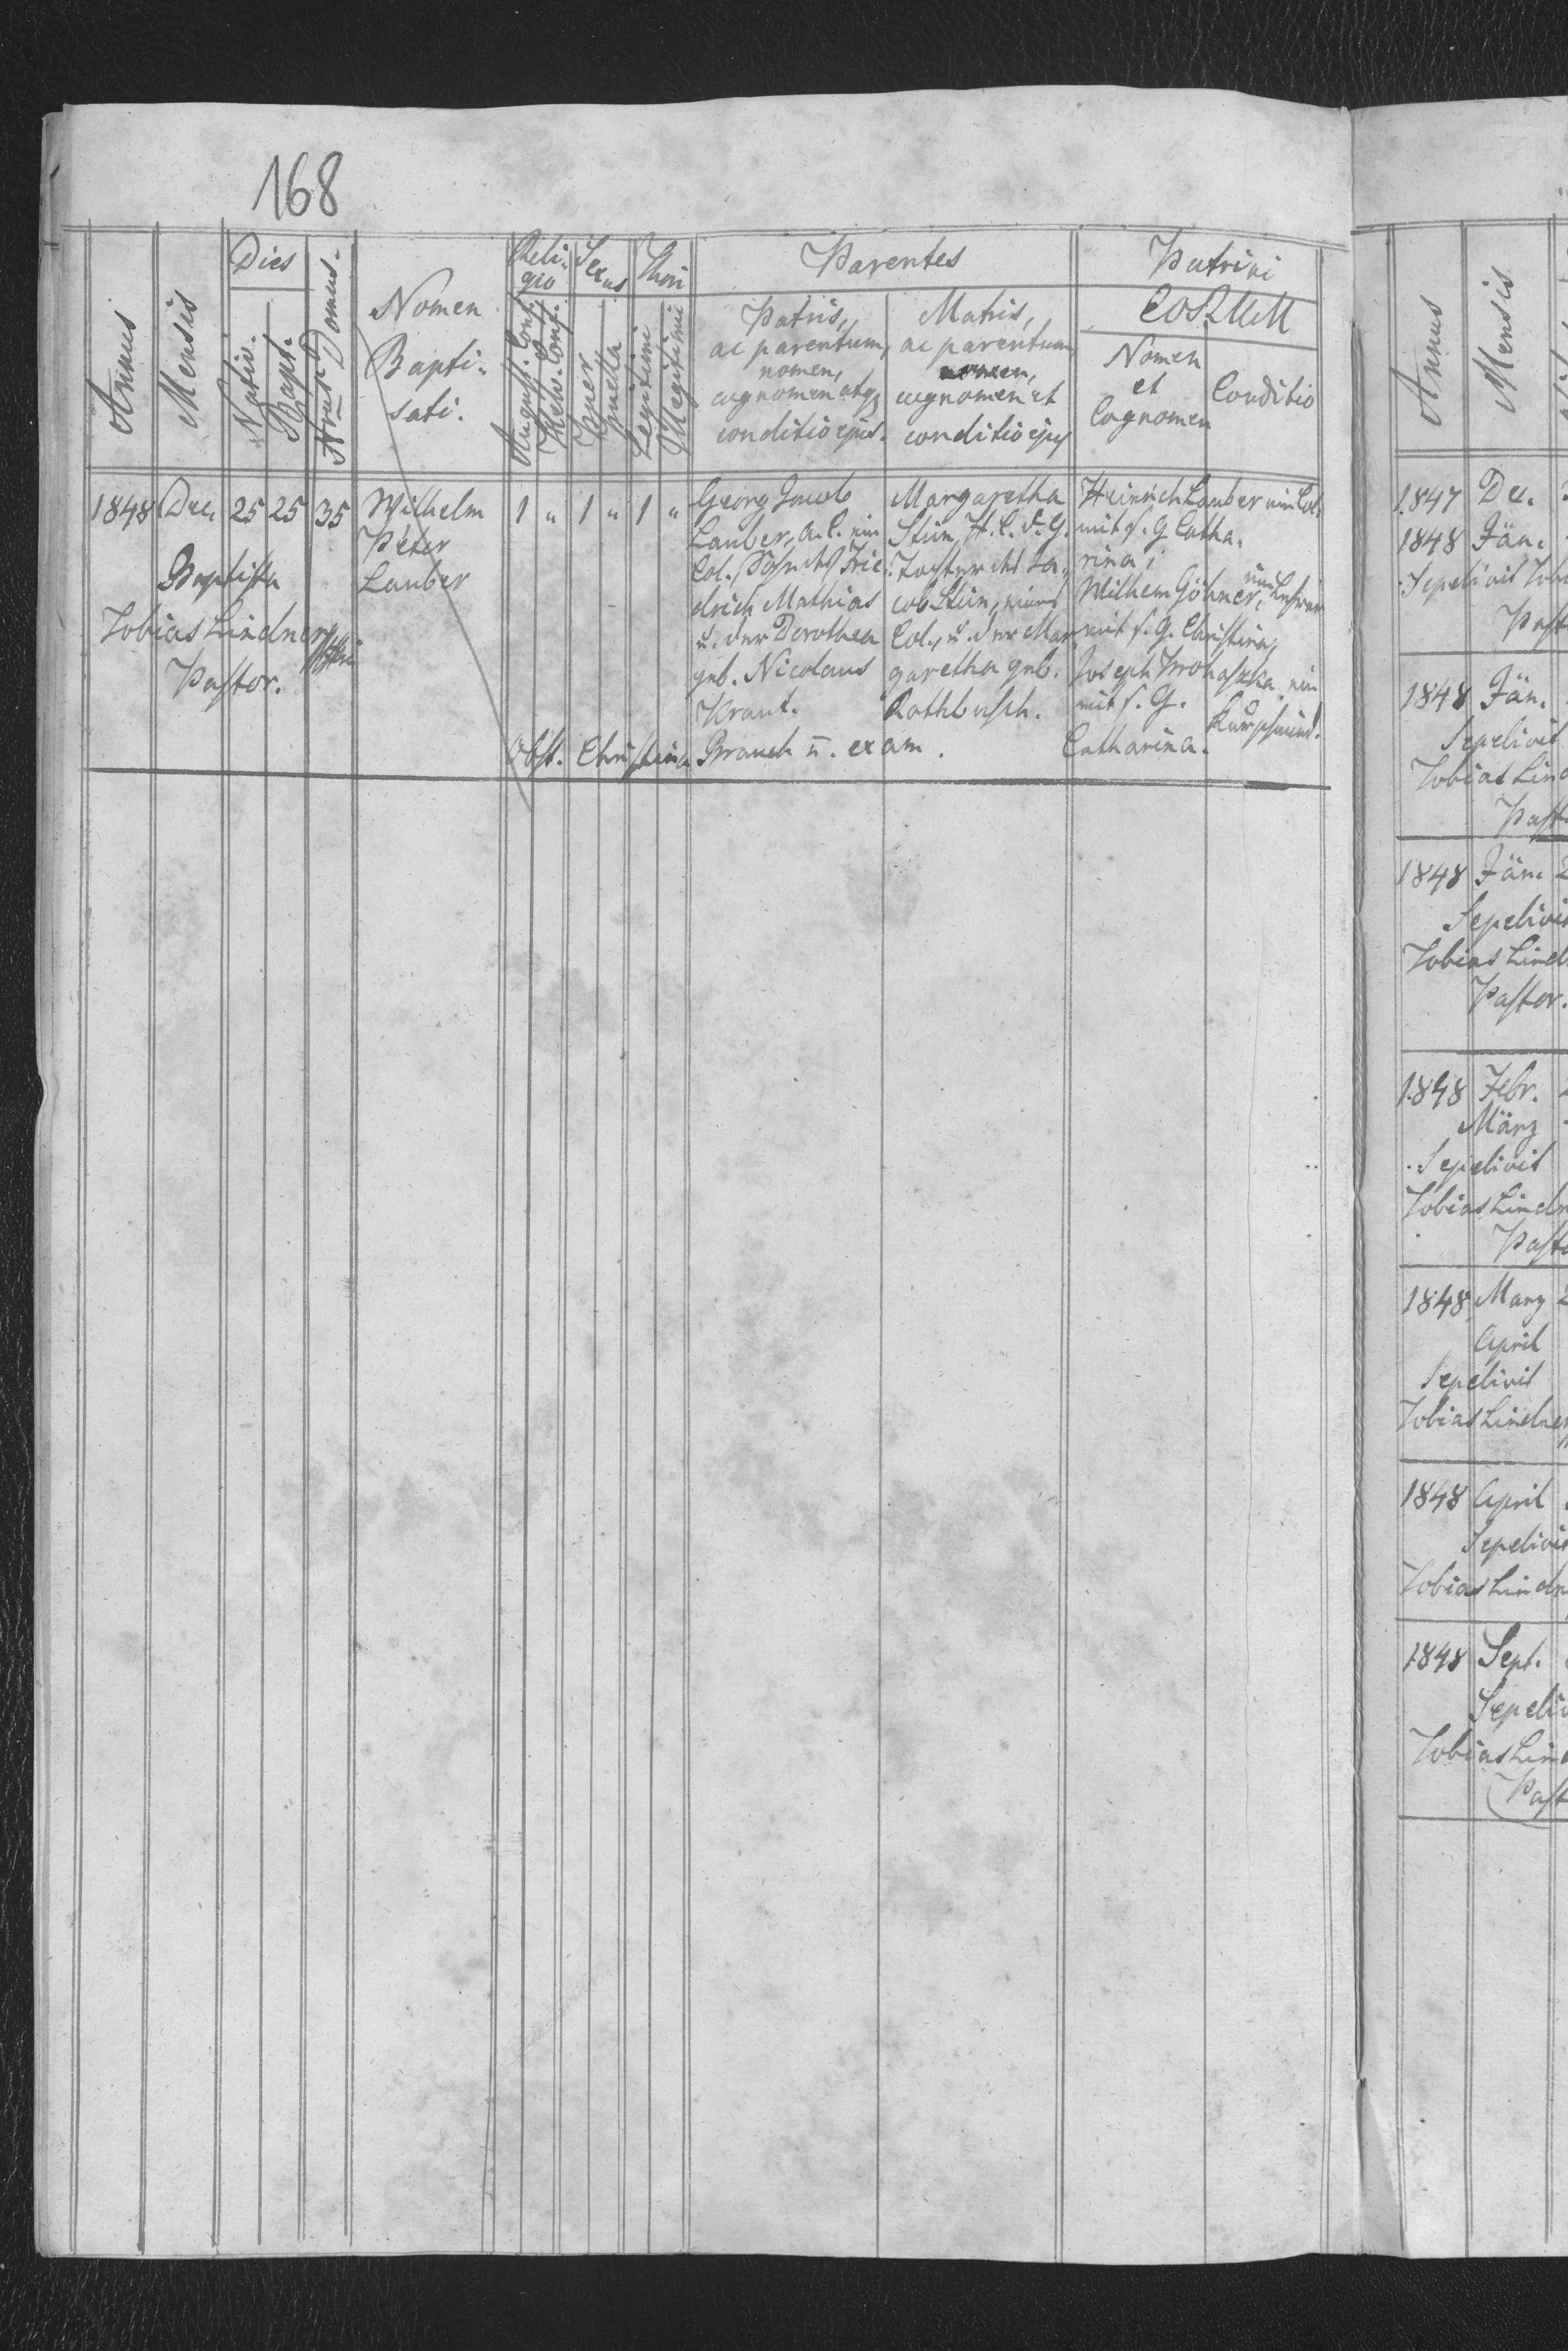 168
Annus
Mensis
Dies
Nativ.
Bapt.
Nrus Domus.
Nomen
Bapti-
sati.
Reli-
gio
August. Conf.
Helv. Conf.
Sexus
Puer
Puella
Thori
Legitimi
Illegitimi
Parentes
Patris,
ac parentum,
nomen,
cognomen atq
conditio ejus.
Matris,
ac parentum
nomen,
cognomen et
conditio ejus
Patrini
Nomen
et
Cognomen
Conditio
1848 Dec. 25 25 35
Baptista
Tobias Lindner
Pastor.
Wilhelm
Peter
Lauber
1 " 1 " 1 "
Georg Jacob
Lauber, A. C. ein
Col., Sohn des Frie-
drich Mathias
u. der Dorothea
geb. Nicolaus
Kraut.
Margaretha
Stein, H. C. d. G.
Tochter des Ja-
cob Stein, eines
Col., u. der Mar-
garetha geb.
Rothbusch.
Heinrich Lauber ein Col.
mit s. G. Catha-
rina;
Wilhelm Göhner, ein Lehrer
mit s. G. Christina,
Joseph Prohaska ein
mit s. G.
Kurschmied.
Catharina.
Obst. Christina Brauch u. exam.
Annus
Mensis
1847 Dec.
1848 Jän.
Sepelivit
1848 Jän.
Sepelivit
Tobias Lind
Past
1848 Jän. 2
Sepelivit
Tobias Lind
Pastor.
1848 Febr. 2
März
Sepelivit
Tobias Lindn
Past
1848 März 2
April
Sepelivit
Tobias Lindner
1848 April
Sepelivit
Tobias Lindn
1848 Sept.
Sepeliv
Tobias Lind
Past